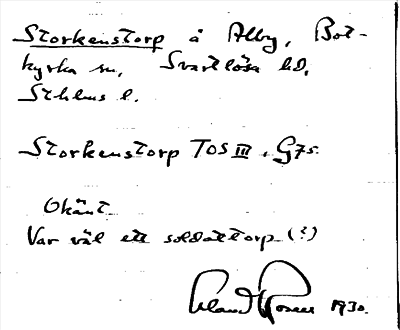 Storkenstorp å Alby, Bot-
kyrka sn, Svartlösa hd,
Sthlms l.
Storkenstorp TOS III, G75.
Okänt
Var väl ett soldattorp (?)
1930.